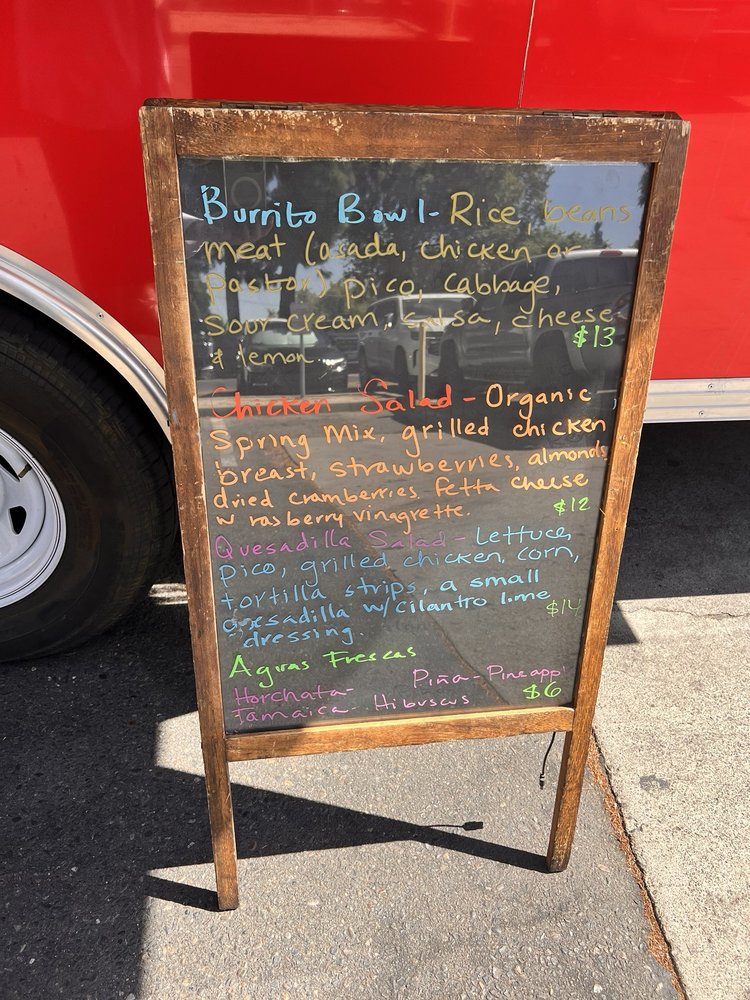 Burrito Bowl - Rice, beans
meat (asada, chicken or
Pastor) pico, Cabbage,
Sour cream, salsa, cheese
$13
& lemon.
Chicken Salad - Organic
Spring Mix, grilled chicken
breast, strawberries, almonds
dried cramberries, fetta cheese
$12
w rasberry vinagrette.
Quesadilla Salad - Lettuce,
pico, grilled chicken, corn,
tortilla strips, a small
quesadilla w/ cilantro lime
$14
dressing.
Aguas Frescas
Horchata- Piña - Pineappl
Jamaica - Hibuscus $6